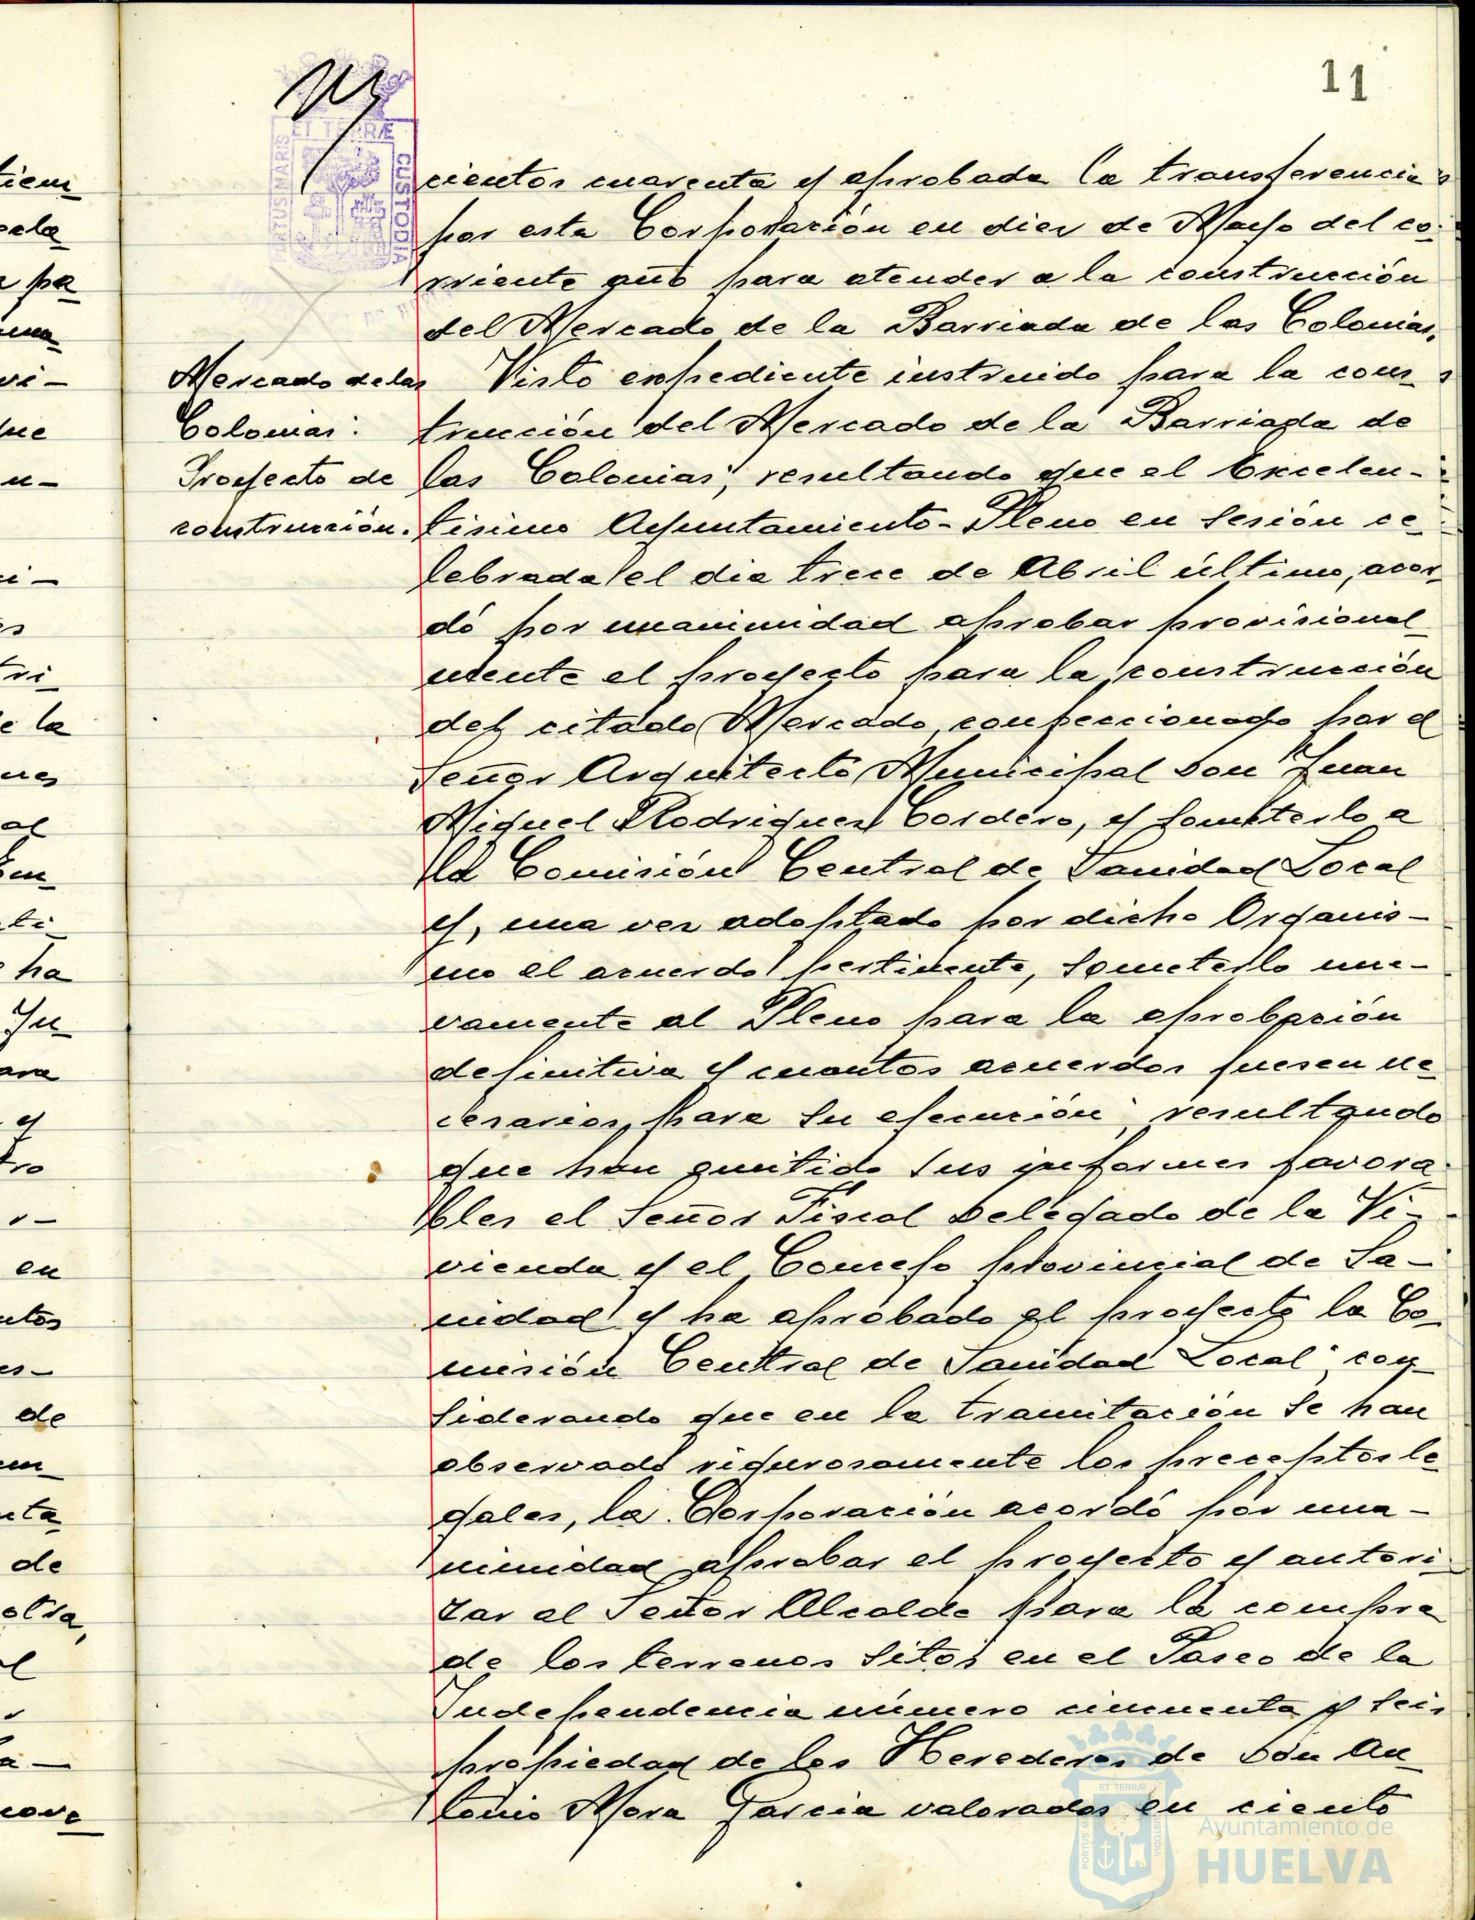 11
PORTUS MARIS
ET TERRÆ
CUSTODIA
cientos cuarenta y aprobada la transferencia
por esta Corporación en diez de Mayo del co-
rriente año para atender a la construcción
del Mercado de la Barriada de las Colonias.
Mercado de las
Colonias:
Proyecto de
construcción.
Visto expediente instruido para la cons-
trucción del Mercado de la Barriada de
las Colonias; resultando que el Excelen-
tísimo Ayuntamiento-Pleno en sesión ce-
lebrada el dia trece de Abril último, acor-
dó por unanimidad aprobar provisional-
mente el proyecto para la construcción
del citado Mercado, confeccionado por el
Señor Arquitecto Municipal Don Juan
Miguel Rodriguez Cordero, y someterlo a
la Comisión Central de Sanidad Local
y, una vez adoptado por dicho Organis-
mo el acuerdo pertinente, someterlo nue-
vamente al Pleno para la aprobación
definitiva y cuantos acuerdos fuesen ne-
cesarios para su ejecución; resultando
que han emitido sus informes favora-
bles el Señor Fiscal Delegado de la Vi-
vienda y el Consejo provincial de Sa-
nidad y ha aprobado el proyecto la Co-
misión Central de Sanidad Local; con-
siderando que en la tramitación se han
observado rigurosamente los preceptos le-
gales, la Corporación acordó por una-
nimidad aprobar el proyecto y autori-
zar al Señor Alcalde para la compra
de los terrenos sitos en el Paseo de la
Independencia número cincuenta y seis
propiedad de los Herederos de Don An-
tonio Mora Garcia valorados en ciento
Ayuntamiento de
HUELVA